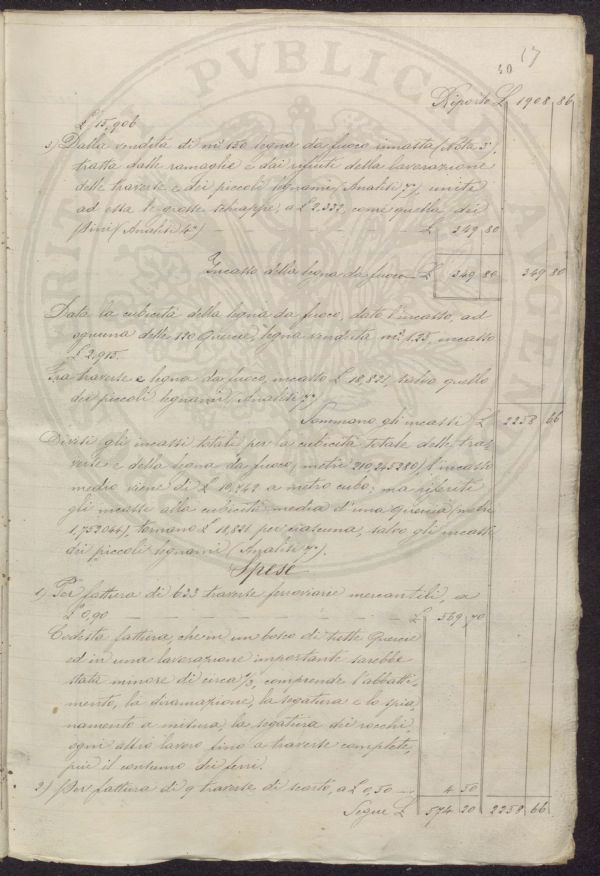 40 17
Riporto £ 1908,86
£ 15,906
3) Dalla vendita di mc 150 legna da fuoco rimasta (Nota 3ª),
tratta dalle ramaglie e dai rifiuti della lavorazione
delle traverse e dei piccoli legnami (Analisi 7ª), unite
ad essa le grosse schiappe, a £ 2.332, come quella dei
Pini (Analisi 4ª) - - - £ 349 80
Incasso della legna da fuoco £ 349 80 349 80
Data la cubicità della legna da fuoco, dato l'incasso, ad
ognuna delle 120 Quercie, legna venduta mc 1.25, incasso
£ 2,915.
Fra traverse e legna da fuoco, incasso £ 18,821, salvo quello
dei piccoli legnami (Analisi 7ª)
Sommano gli incassi £ 2258 66
Divisi gli incassi totali per la cubicità totale delle tra-
verse e della legna da fuoco, metri 210,245280, l'incasso
medio viene di £ 10,742 a metro cubo; ma riferiti
gli incassi alla cubicità media d'una Quercia (metri
1,752044), tornano £ 18,821 per ciascuna, salvo gli incassi
dei piccoli legnami (Analisi 7ª).
Spese
1) Per fattura di 633 traverse ferroviarie mercantili, a
£ 0,90 - - - £ 569,70
Codesta fattura, che in un bosco di tutte Quercie
ed in una lavorazione importante sarebbe
stata minore di circa 1/3, comprende l'abbatti-
mento, la diramazione, la segatura e lo spia-
namento a misura, la segatura dei rocchi,
ogni altro lavoro fino a traverse complete,
più il consumo dei ferri.
2) Per fattura di 9 traverse di scarto, a £ 0,50 - 4 50
Segue £ 574 20 2258 66